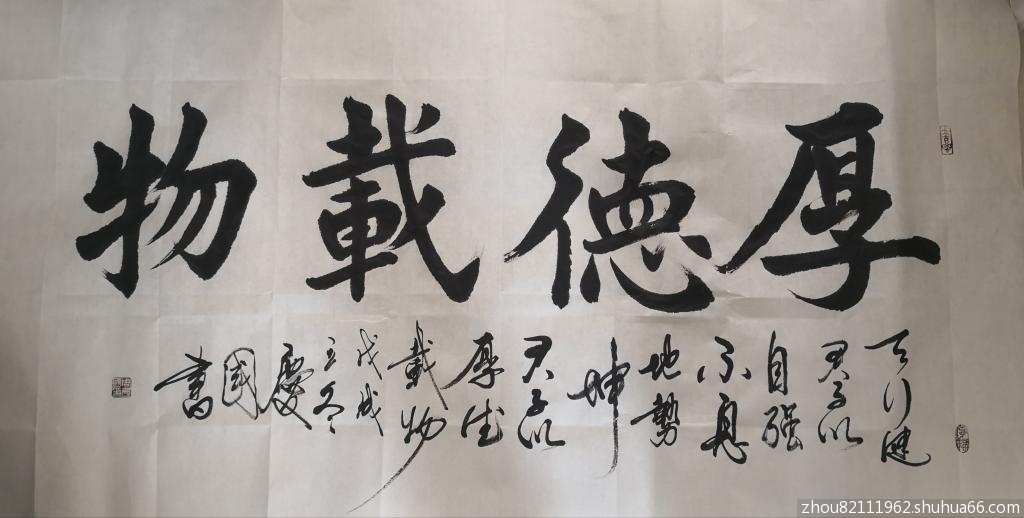 厚德載物
天行健
君子以
自强
不息
地勢
坤
君子以
厚德
載物
戊戌
立冬
慶
國
書
zhou82111962.shuhua66.com